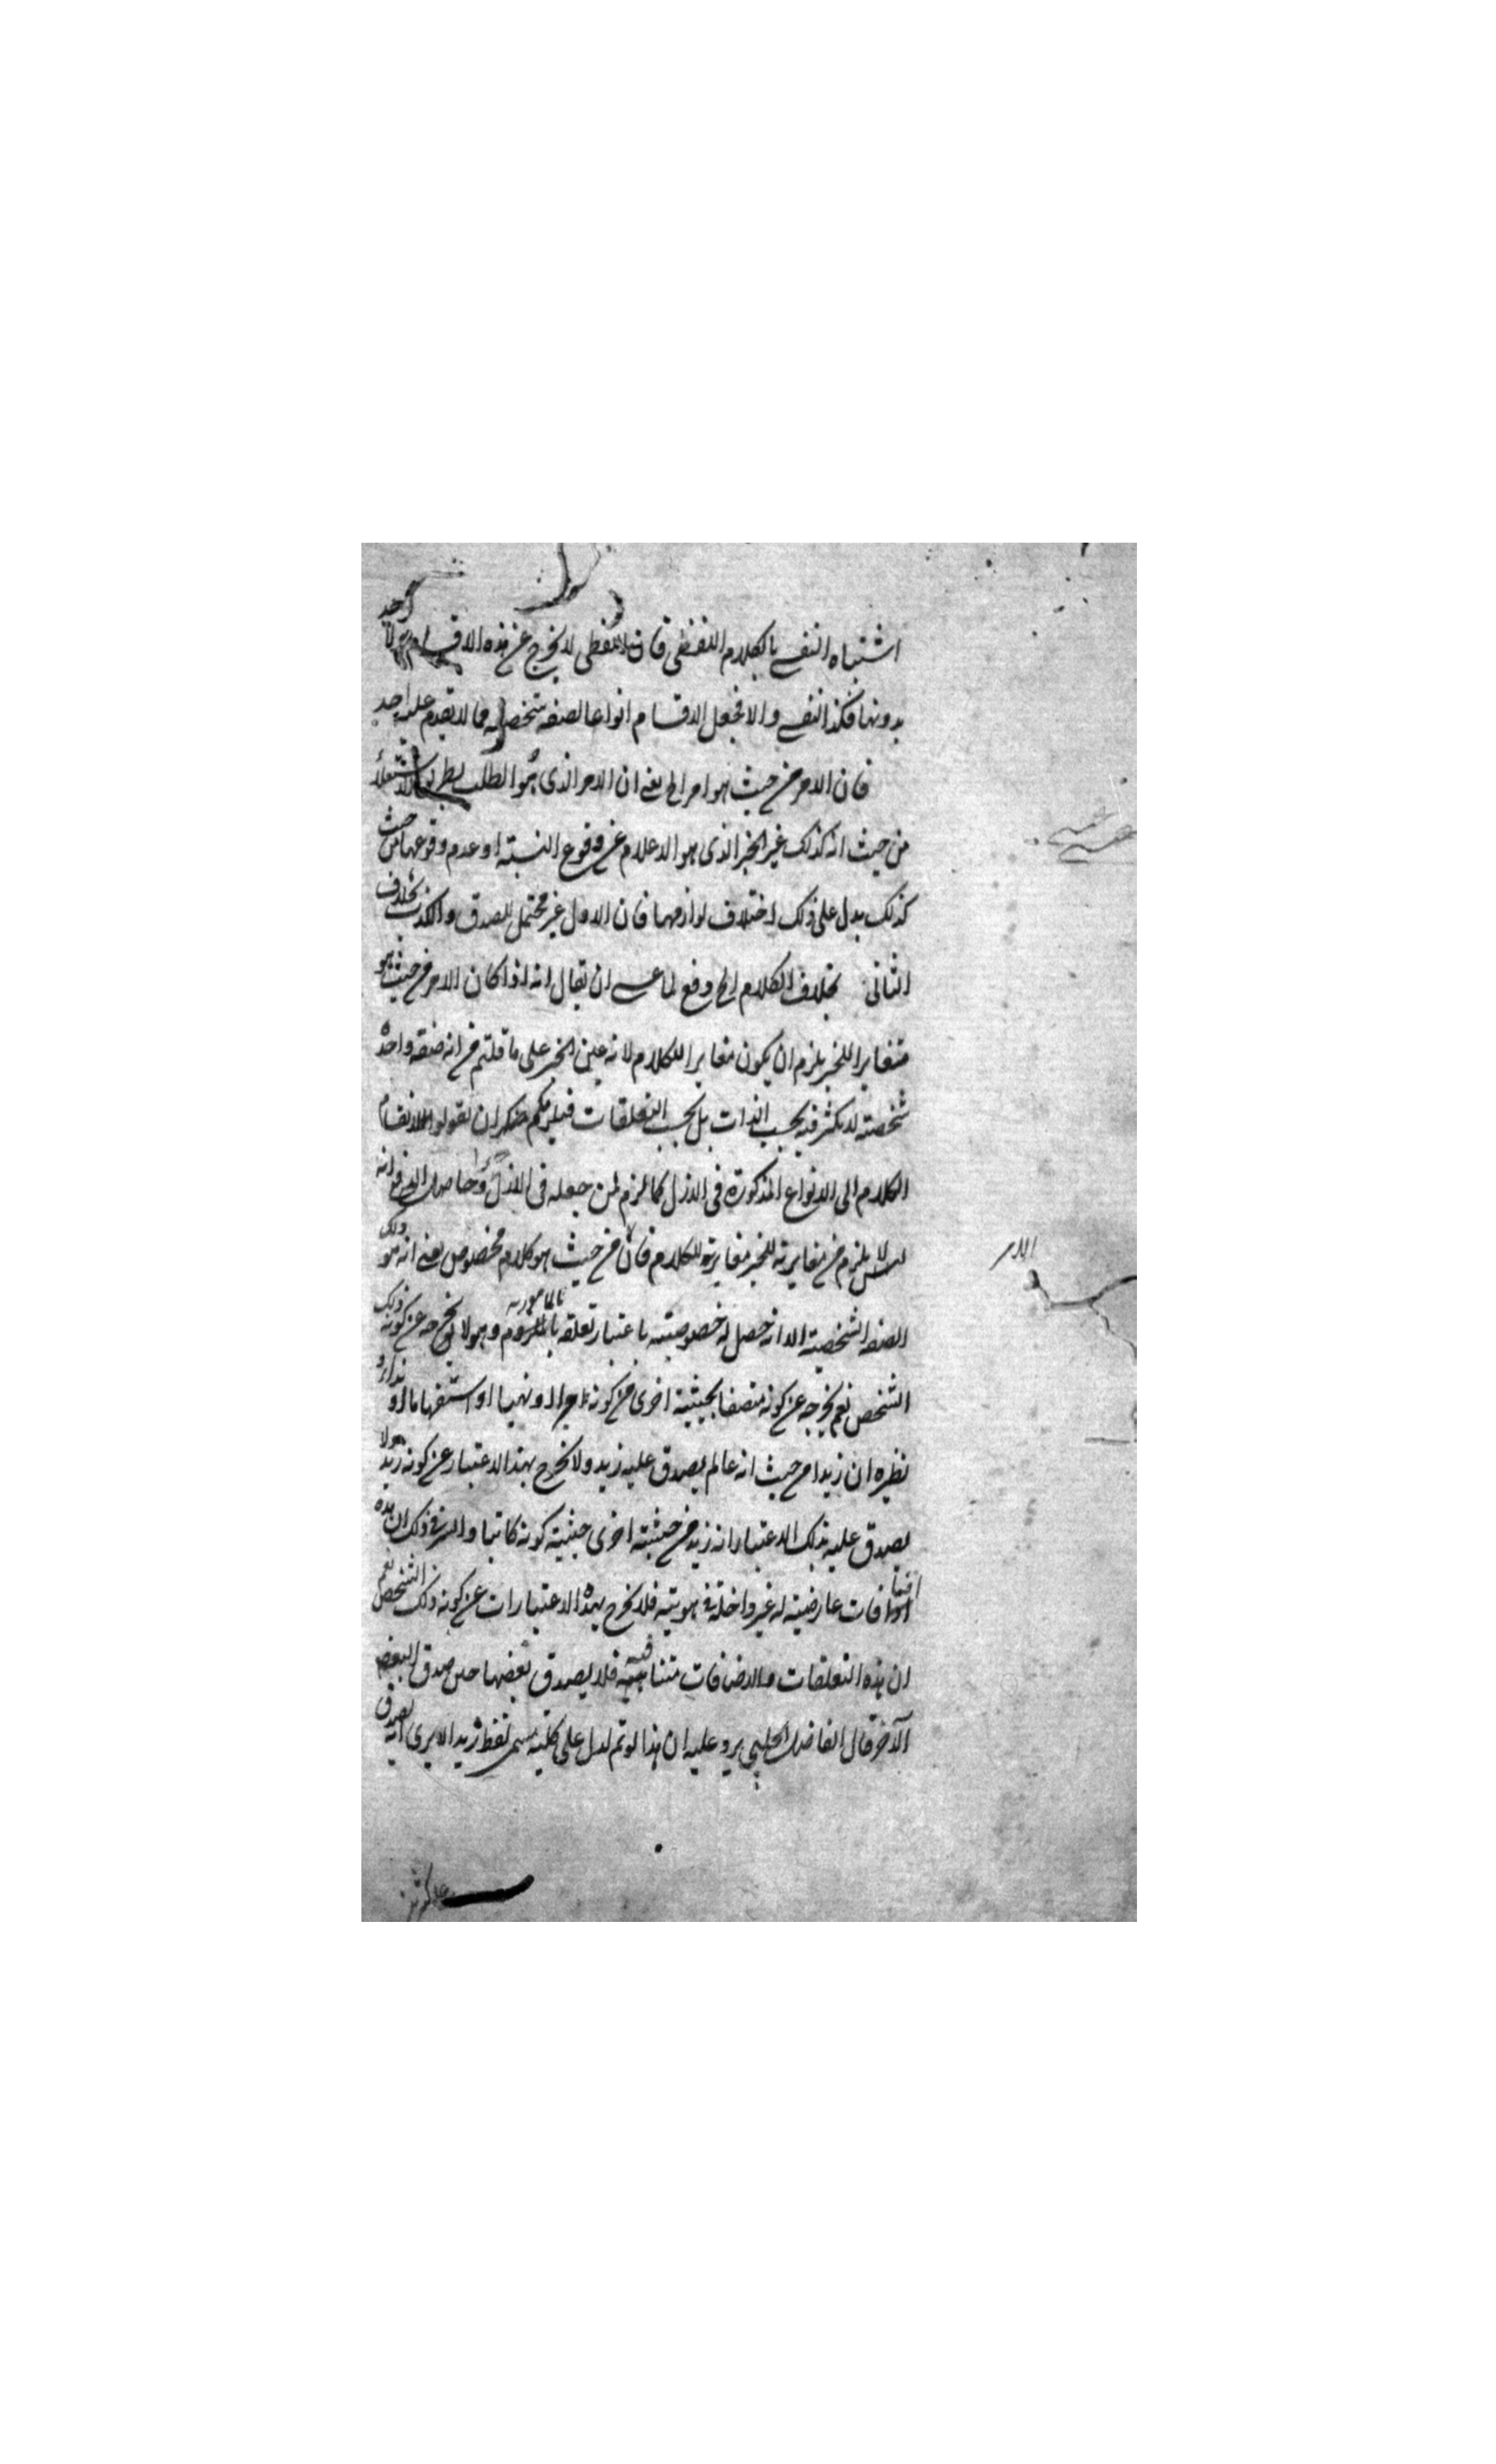 اشتباه النفسے بالكلام اللفظى فان اللفظى لا يخرج عن هذه الاقسام ولا يوجد
بدونها فكذا النفسے والا فجعل الاقسام انواعا لصفة شخصية مما لا يقدم عليه احد
فان الامر من حيث هو امر الخ يعنے ان الامر الذى هو الطلب بطريق الاستعلاء
من حيث انه كذلك غير الخبر الذى هو الاعلام عن وقوع النسبة او عدم وقوعها من حيث
كذلك يدل على ذلك اختلاف لوازمهما فان الاول غير محتمل للصدق والكذب بخلاف
الثانى بخلاف الكلام الخ دفع لما عسے ان يقال انه اذا كان الامر من حيث هو
متغايرا للخبر يلزم ان يكون مغايرا للكلام لانه عين الخبر على ما قلتم من انه صفة واحدة
شخصية لا تكثر فيه بحسب الذات بل بحسب التعلقات فيلزمكم ان تقولوا بانقسام
الكلام الى الانواع المذكورة فى الازل كما لزم لمن جعله فى الازل وحاصل الدفع انه
لا يلزم من مغايرته للخبر مغايرته للكلام فان من حيث هو كلام مخصوص يعنے انه هو ذلك
الصفة الشخصية الا انه حصل له خصوصيته باعتبار تعلقه بالمامور به وهو لا يخرجه عن كونه ذلك
الشخص نعم يخرجه عن كونه متصفا بحيثية اخرى من كونه خبرا او نهيا او استفهاما او نداء و
نظيره ان زيدا من حيث انه عالم يصدق عليه زيد ولا يخرج بهذا الاعتبار عن كونه زيدا ولا
يصدق عليه بذلك الاعتبار انه زيد من حيثية اخرى حيثية كونه كاتبا والسر فى ذلك ان هذه
اضافات عارضية له غير داخلة فى هويته فلا يخرج بهذه الاعتبارات عن كونه ذلك الشخص نعم
ان هذه التعلقات والاضافات متنافية فلا يصدق بعضها حين صدق البعض
الآخر قال الفاضل الحلبى يرد عليه ان هذا لو تم لدل على كلية مسمى لفظ زيد الا يرى انه يصدق